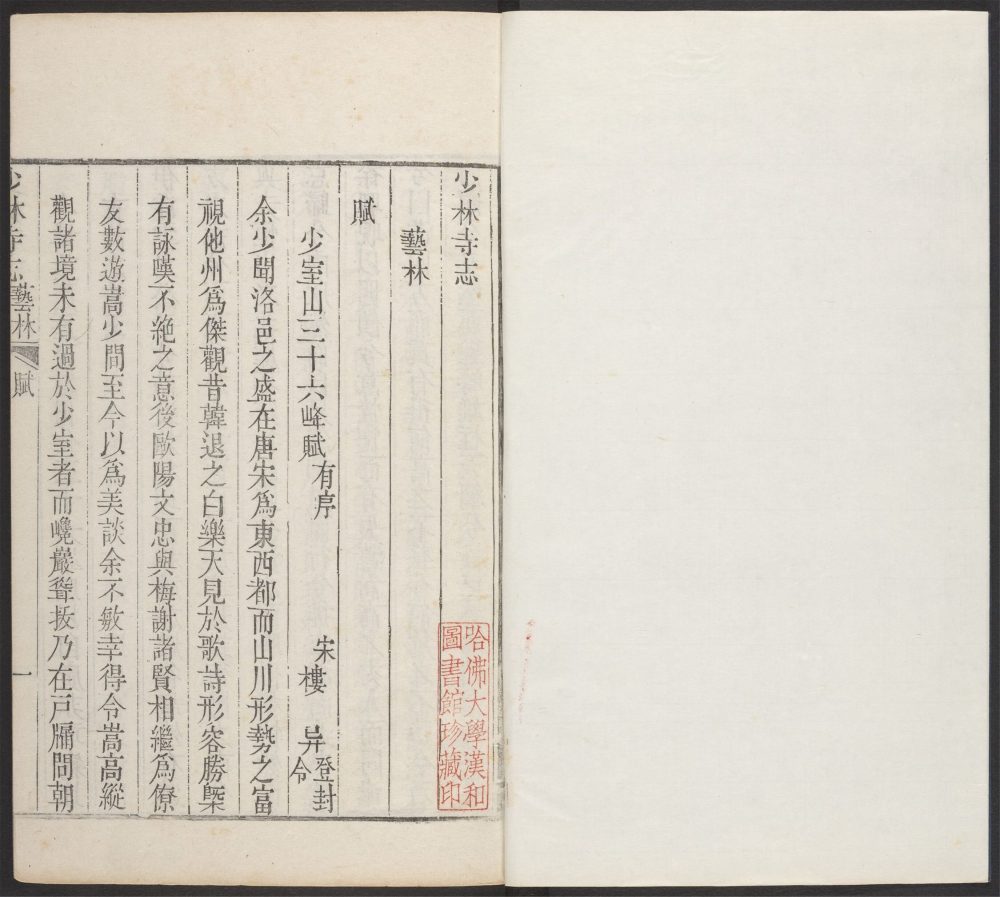 少林寺志
哈佛大學漢和
圖書館珍藏印
藝林
賦
少室山三十六峰賦 有序 宋樓异 登封令
余少聞洛邑之盛在唐宋爲東西都而山川形勢之富
視他州爲傑觀昔韓退之白樂天見於歌詩形容勝槩
有詠嘆不絶之意後歐陽文忠與梅謝諸賢相繼爲僚
友數遊嵩少間至今以爲美談余不敏幸得令嵩高縱
觀諸境未有過於少室者而巉巖聳拔乃在戸牖間朝
少林寺志藝林 賦 一